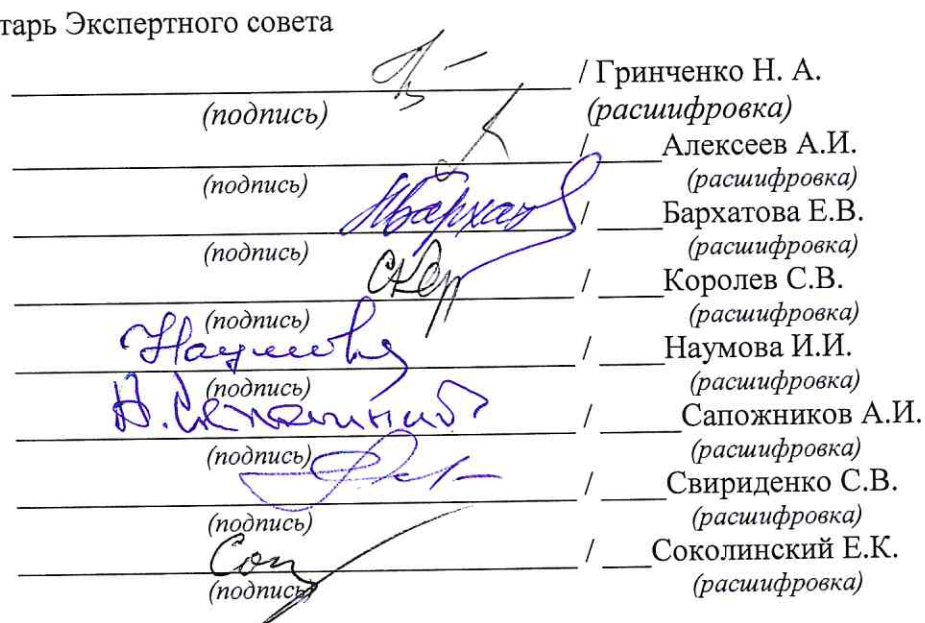 тарь Экспертного совета
/ Гринченко Н. А.
(подпись) (расшифровка)
/ ____Алексеев А.И.
(подпись) (расшифровка)
/ ____Бархатова Е.В.
(подпись) (расшифровка)
/ ____Королев С.В.
(подпись) (расшифровка)
Наумова / ____Наумова И.И.
(подпись) (расшифровка)
/ _____Сапожников А.И.
(подпись) (расшифровка)
/ ____Свириденко С.В.
(подпись) (расшифровка)
/ ___Соколинский Е.К.
(подпись) (расшифровка)